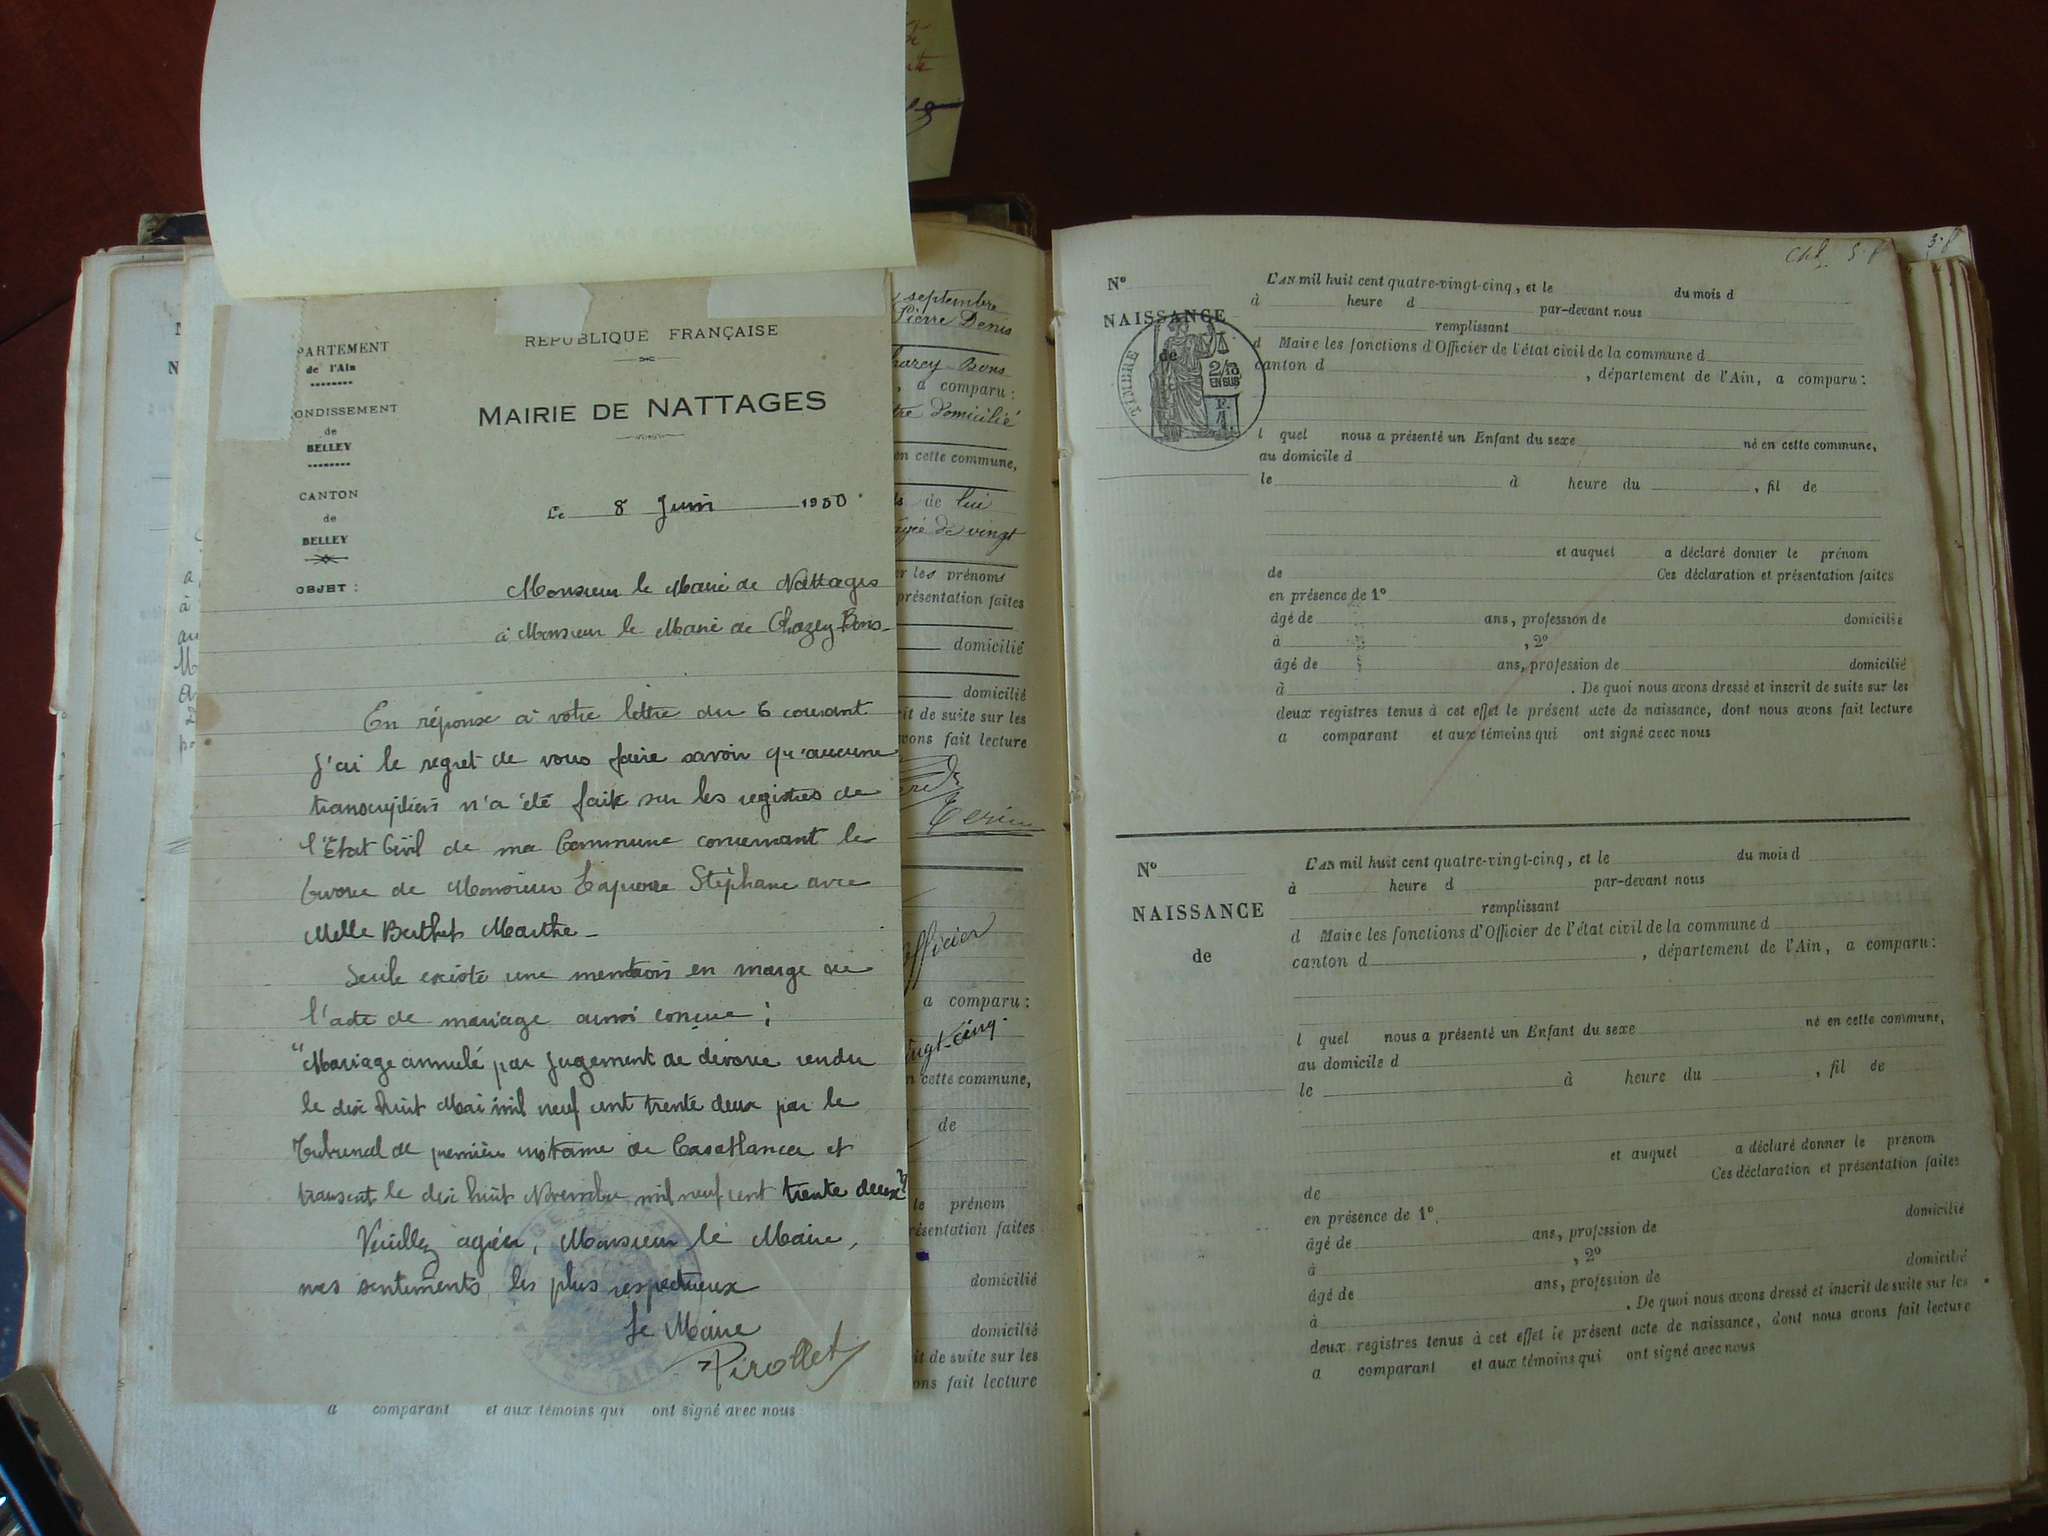 PARTEMENT
de l'Ain
ONDISSEMENT
de
BELLEY
CANTON
de
BELLEY
OBJET :
REPUBLIQUE FRANÇAISE
MAIRIE DE NATTAGES
Le 8 Juin 1950
Monsieur le Maire de Nattages
à Monsieur le Maire de Chazey-Bons_
En réponse à votre lettre du 6 courant
j'ai le regret de vous faire savoir qu'aucune
transcription n'a été faite sur les registres de
l'Etat Civil de ma Commune concernant le
divorce de Monsieur Stéphane avec
Melle Berthet Marthe_
Seule existe une mention en marge de
l'acte de mariage ainsi conçue ;
"Mariage annulé par jugement de divorce rendu
le dix huit Mai mil neuf cent trente deux par le
Tribunal de première instance de Casablanca et
transcrit le dix huit Novembre mil neuf cent trente deux"
Veuillez agréer, Monsieur le Maire,
mes sentiments les plus respectueux
Le Maire
Pirollet
septembre
Pierre Denis
Bons
, a comparu :
domicilié
en cette commune,
de lui
âgé de vingt
les prénoms
présentation faites
domicilié
domicilié
it de suite sur les
vons fait lecture
officier
a comparu :
vingt-cinq.
n cette commune,
de
le prénom
résentation faites
domicilié
domicilié
it de suite sur les
ons fait lecture
a comparant et aux témoins qui ont signé avec nous
3.8
N°
NAISSANCE
de
TIMBRE
2/10
EN SUS
L'AN mil huit cent quatre-vingt-cinq, et le du mois d
à heure d par-devant nous
remplissant
d Maire les fonctions d'Officier de l'état civil de la commune d
canton d , département de l'Ain, a comparu :
l quel nous a présenté un Enfant du sexe né en cette commune,
au domicile d
le à heure du , fil de
et auquel a déclaré donner le prénom
de Ces déclaration et présentation faites
en présence de 1°
âgé de ans, profession de domicilié
à , 2°
âgé de ans, profession de domicilié
à . De quoi nous avons dressé et inscrit de suite sur les
deux registres tenus à cet effet le présent acte de naissance, dont nous avons fait lecture
a comparant et aux témoins qui ont signé avec nous
N°
NAISSANCE
de
L'AN mil huit cent quatre-vingt-cinq, et le du mois d
à heure d par-devant nous
remplissant
d Maire les fonctions d'Officier de l'état civil de la commune d
canton d , département de l'Ain, a comparu :
l quel nous a présenté un Enfant du sexe né en cette commune,
au domicile d
le à heure du , fil de
et auquel a déclaré donner le prénom
de Ces déclaration et présentation faites
en présence de 1°
âgé de ans, profession de domicilié
à , 2°
âgé de ans, profession de domicilié
à . De quoi nous avons dressé et inscrit de suite sur les
deux registres tenus à cet effet le présent acte de naissance, dont nous avons fait lecture
a comparant et aux témoins qui ont signé avec nous